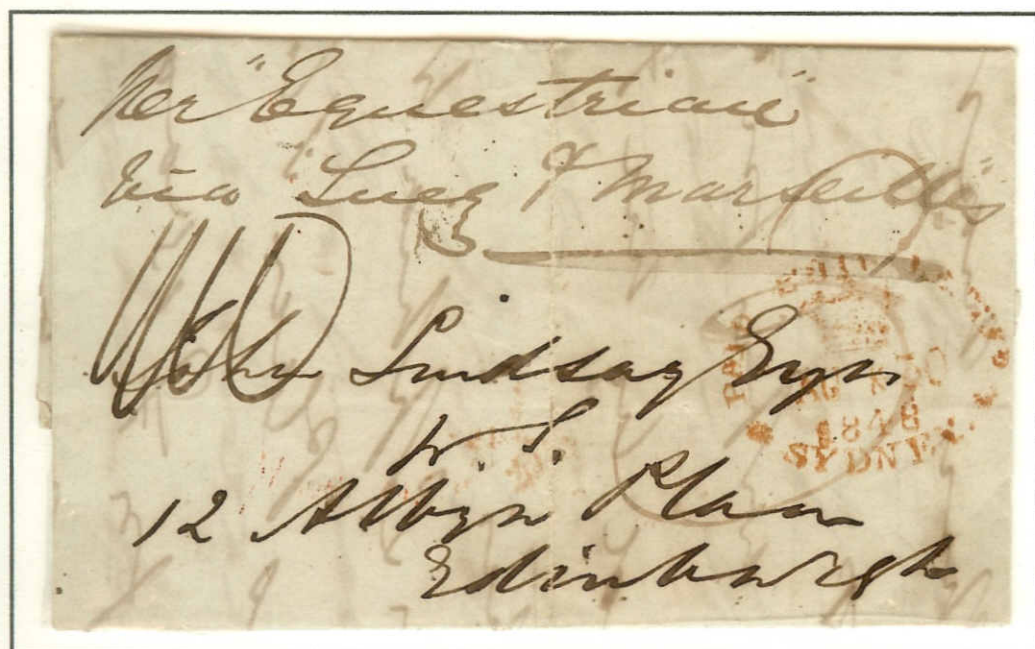 Per "Equestrian"
via "Suez & Marseilles"
John Lindsay Esqr
W. S.
12 Albyn Place
Edinburgh
PAID
1848
SYDNEY